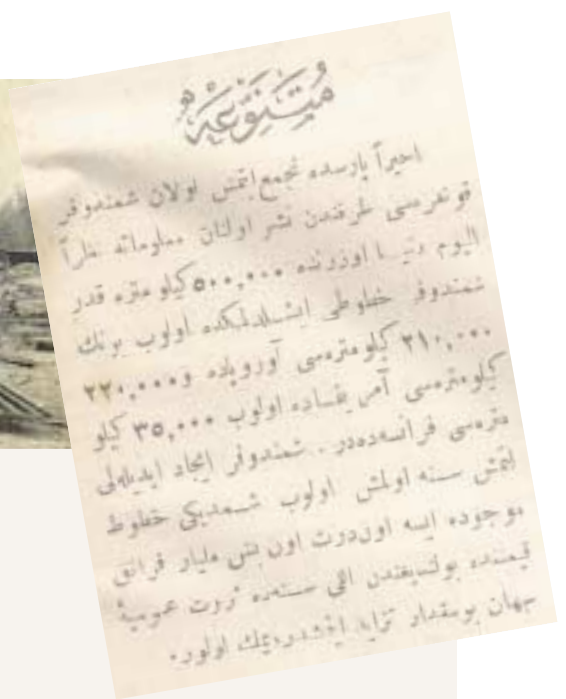 متنوعه
اخيراً پارسده تجمع ايتمش اولان شمندوفر
قونغره‌سى طرفندن نشر اولنان معلوماته نظراً
اليوم دنيا اوزرنده ٥٠٠,٠٠٠ كيلو متره قدر
شمندوفر خطوطى ايشلدلمكده اولوب بونك
٢١٠,٠٠٠ كيلو متره‌سى آوروپاده و ٢٢٠,٠٠٠
كيلو متره‌سى آمريقاده اولوب ٣٥,٠٠٠ كيلو
متره‌سى فرانسه‌ده‌در . شمندوفر ايجاد ايديله‌لى
يتمش سنه اولمش اولوب شمديكى خطوط
موجوده ايسه اون‌درت اون بش مليار فرانق
قيمتنده بولنديغندن اللى سنه‌ده ثروت عموميهٔ
جهان بومقدار تزايد ايتمشدر ديمك اولور .